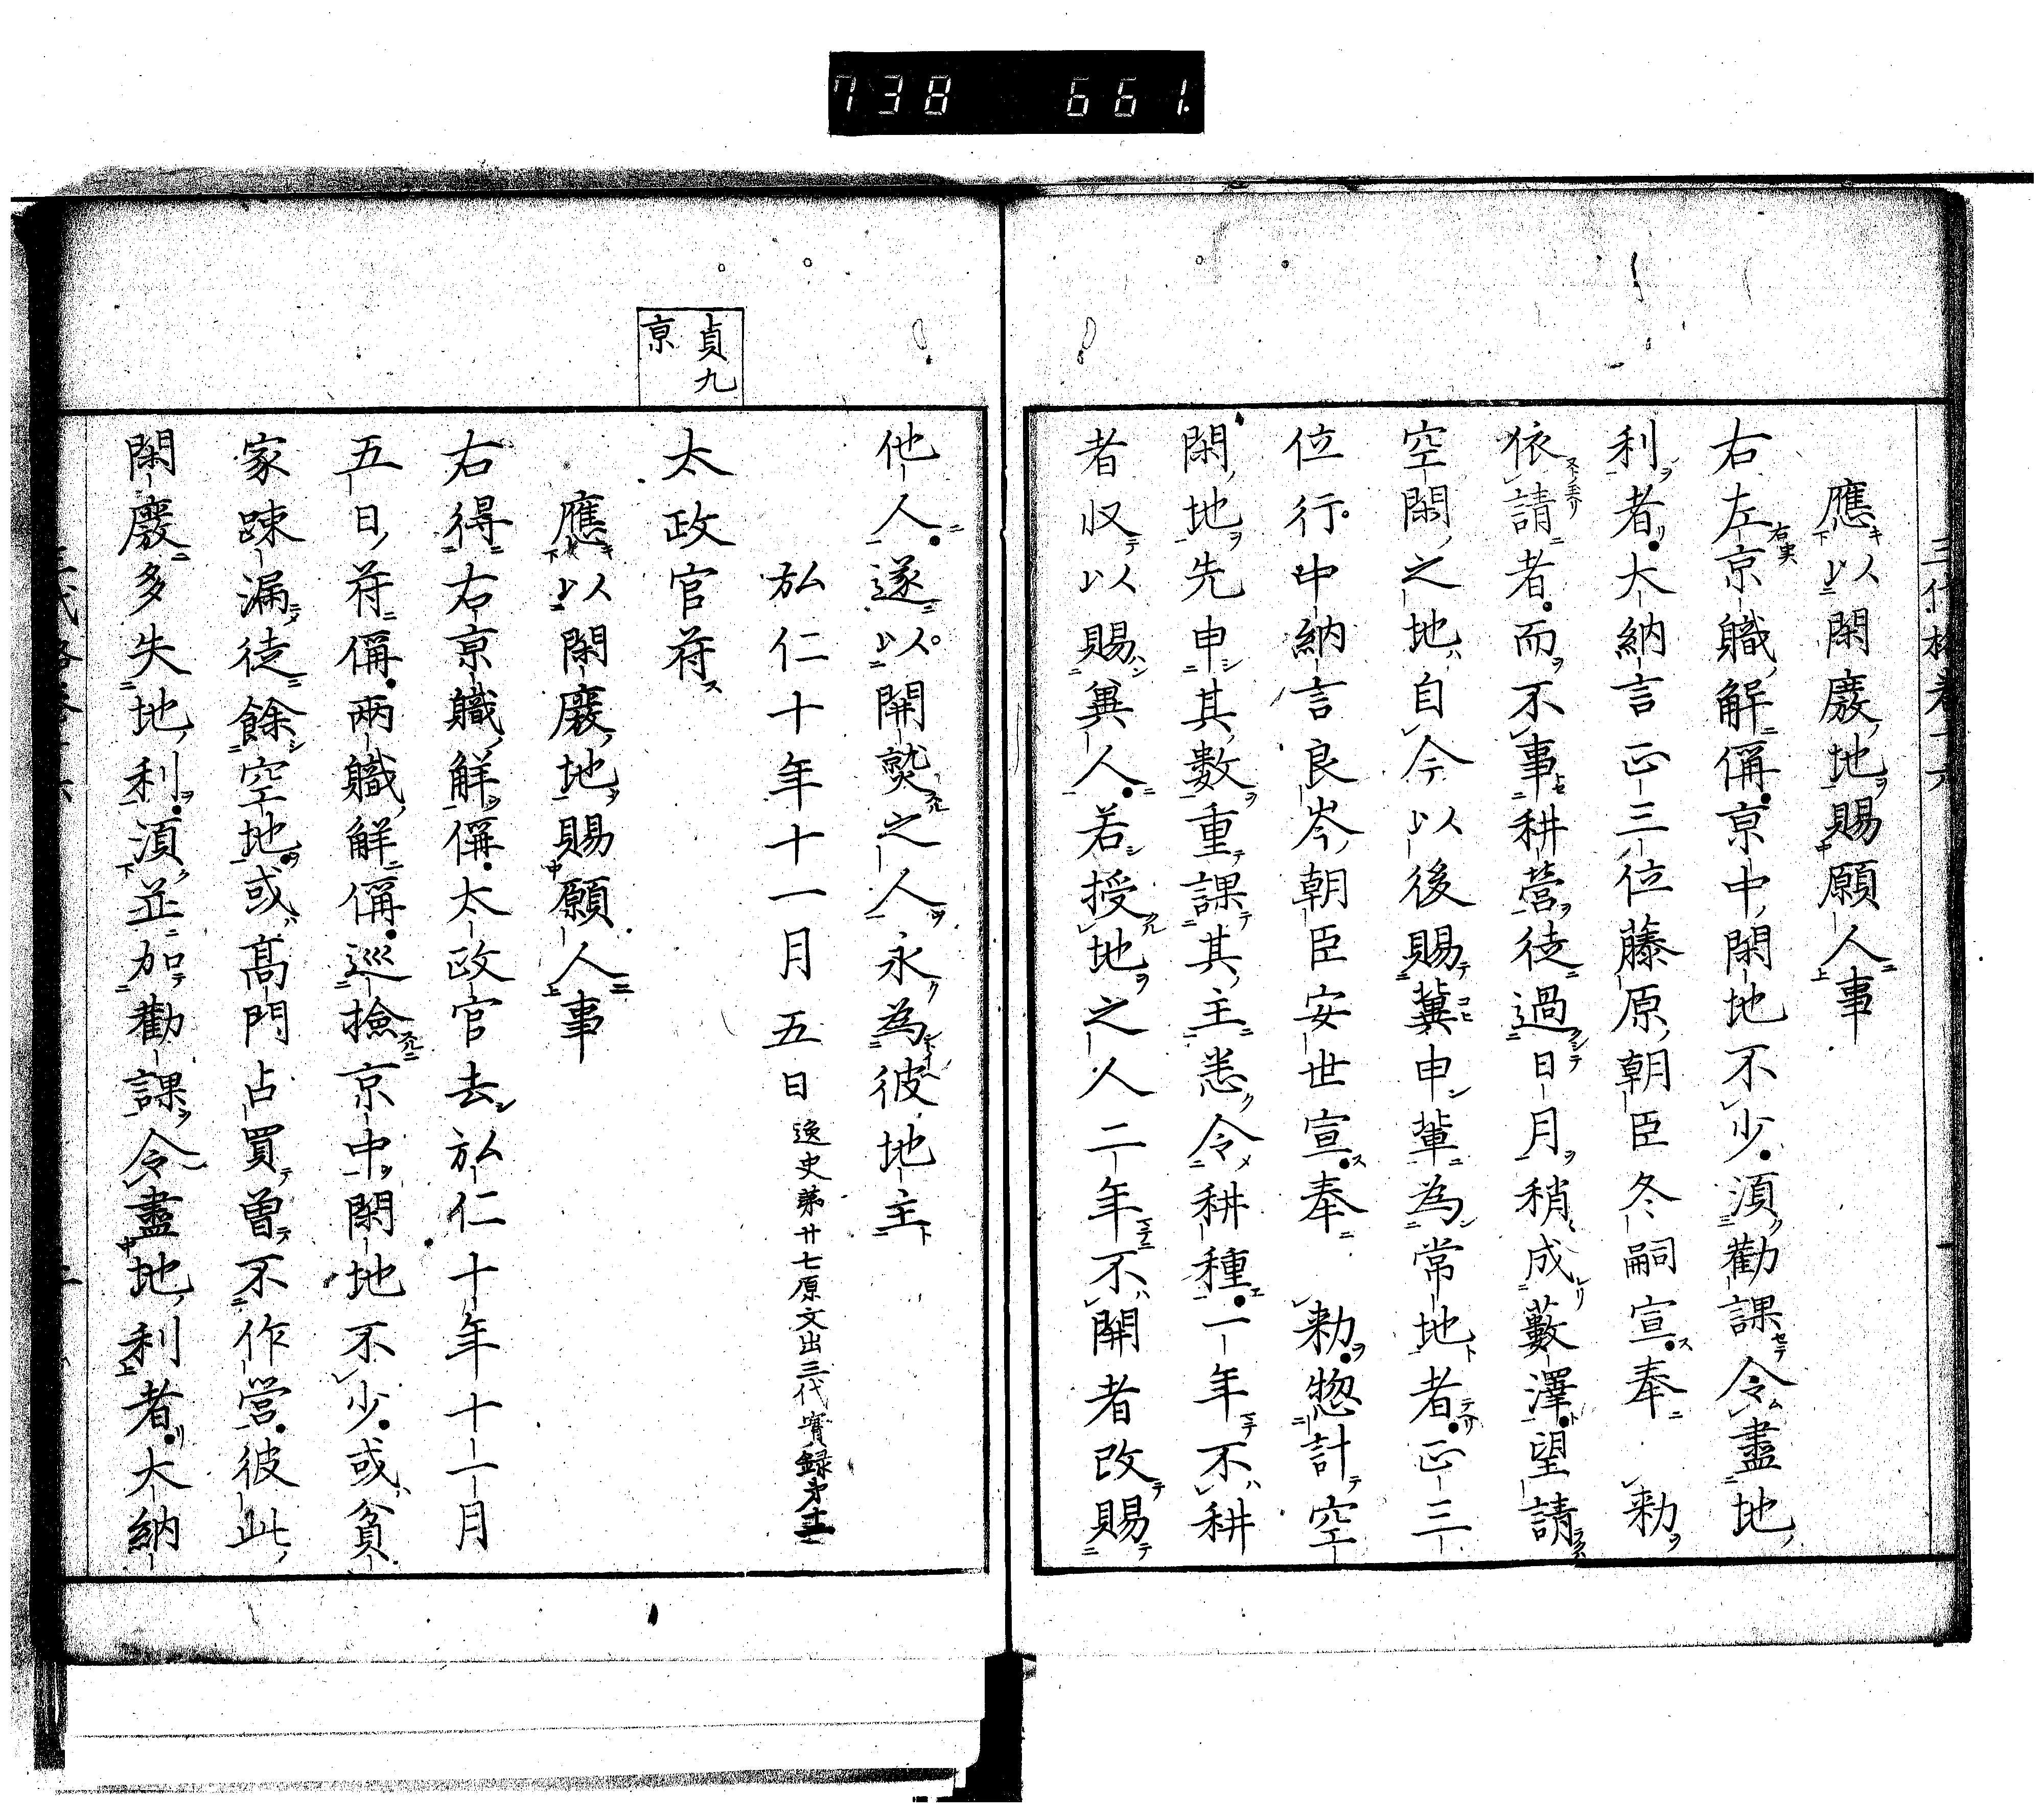 738 661.
應以閑廢地賜願人事
右左京職解偁京中閑地不少須勸課令盡地
利者大納言正三位藤原朝臣冬嗣宣奉 勅
依請者而不事耕營徒過日月稍成藪澤望請
空閑之地自今以後賜冀申輩為常地者正三
位行中納言良岑朝臣安世宣奉 勅惣計空
閑地先申其數重課其主悉令耕種一年不耕
者収以賜冀人若授地之人二年不開者改賜
他人遂以開熨之人永為彼地主
弘仁十年十一月五日 逸史第廿七原文出三代實録
貞九
京
太政官符
應以閑廢地賜願人事
右得右京職解偁太政官去弘仁十年十一月
五日符偁兩職解偁巡撿京中閑地不少或貧
家踈漏徒餘空地或高門占買曽不作營彼此
閑廢多失地利須並加勸課令盡地利者大納